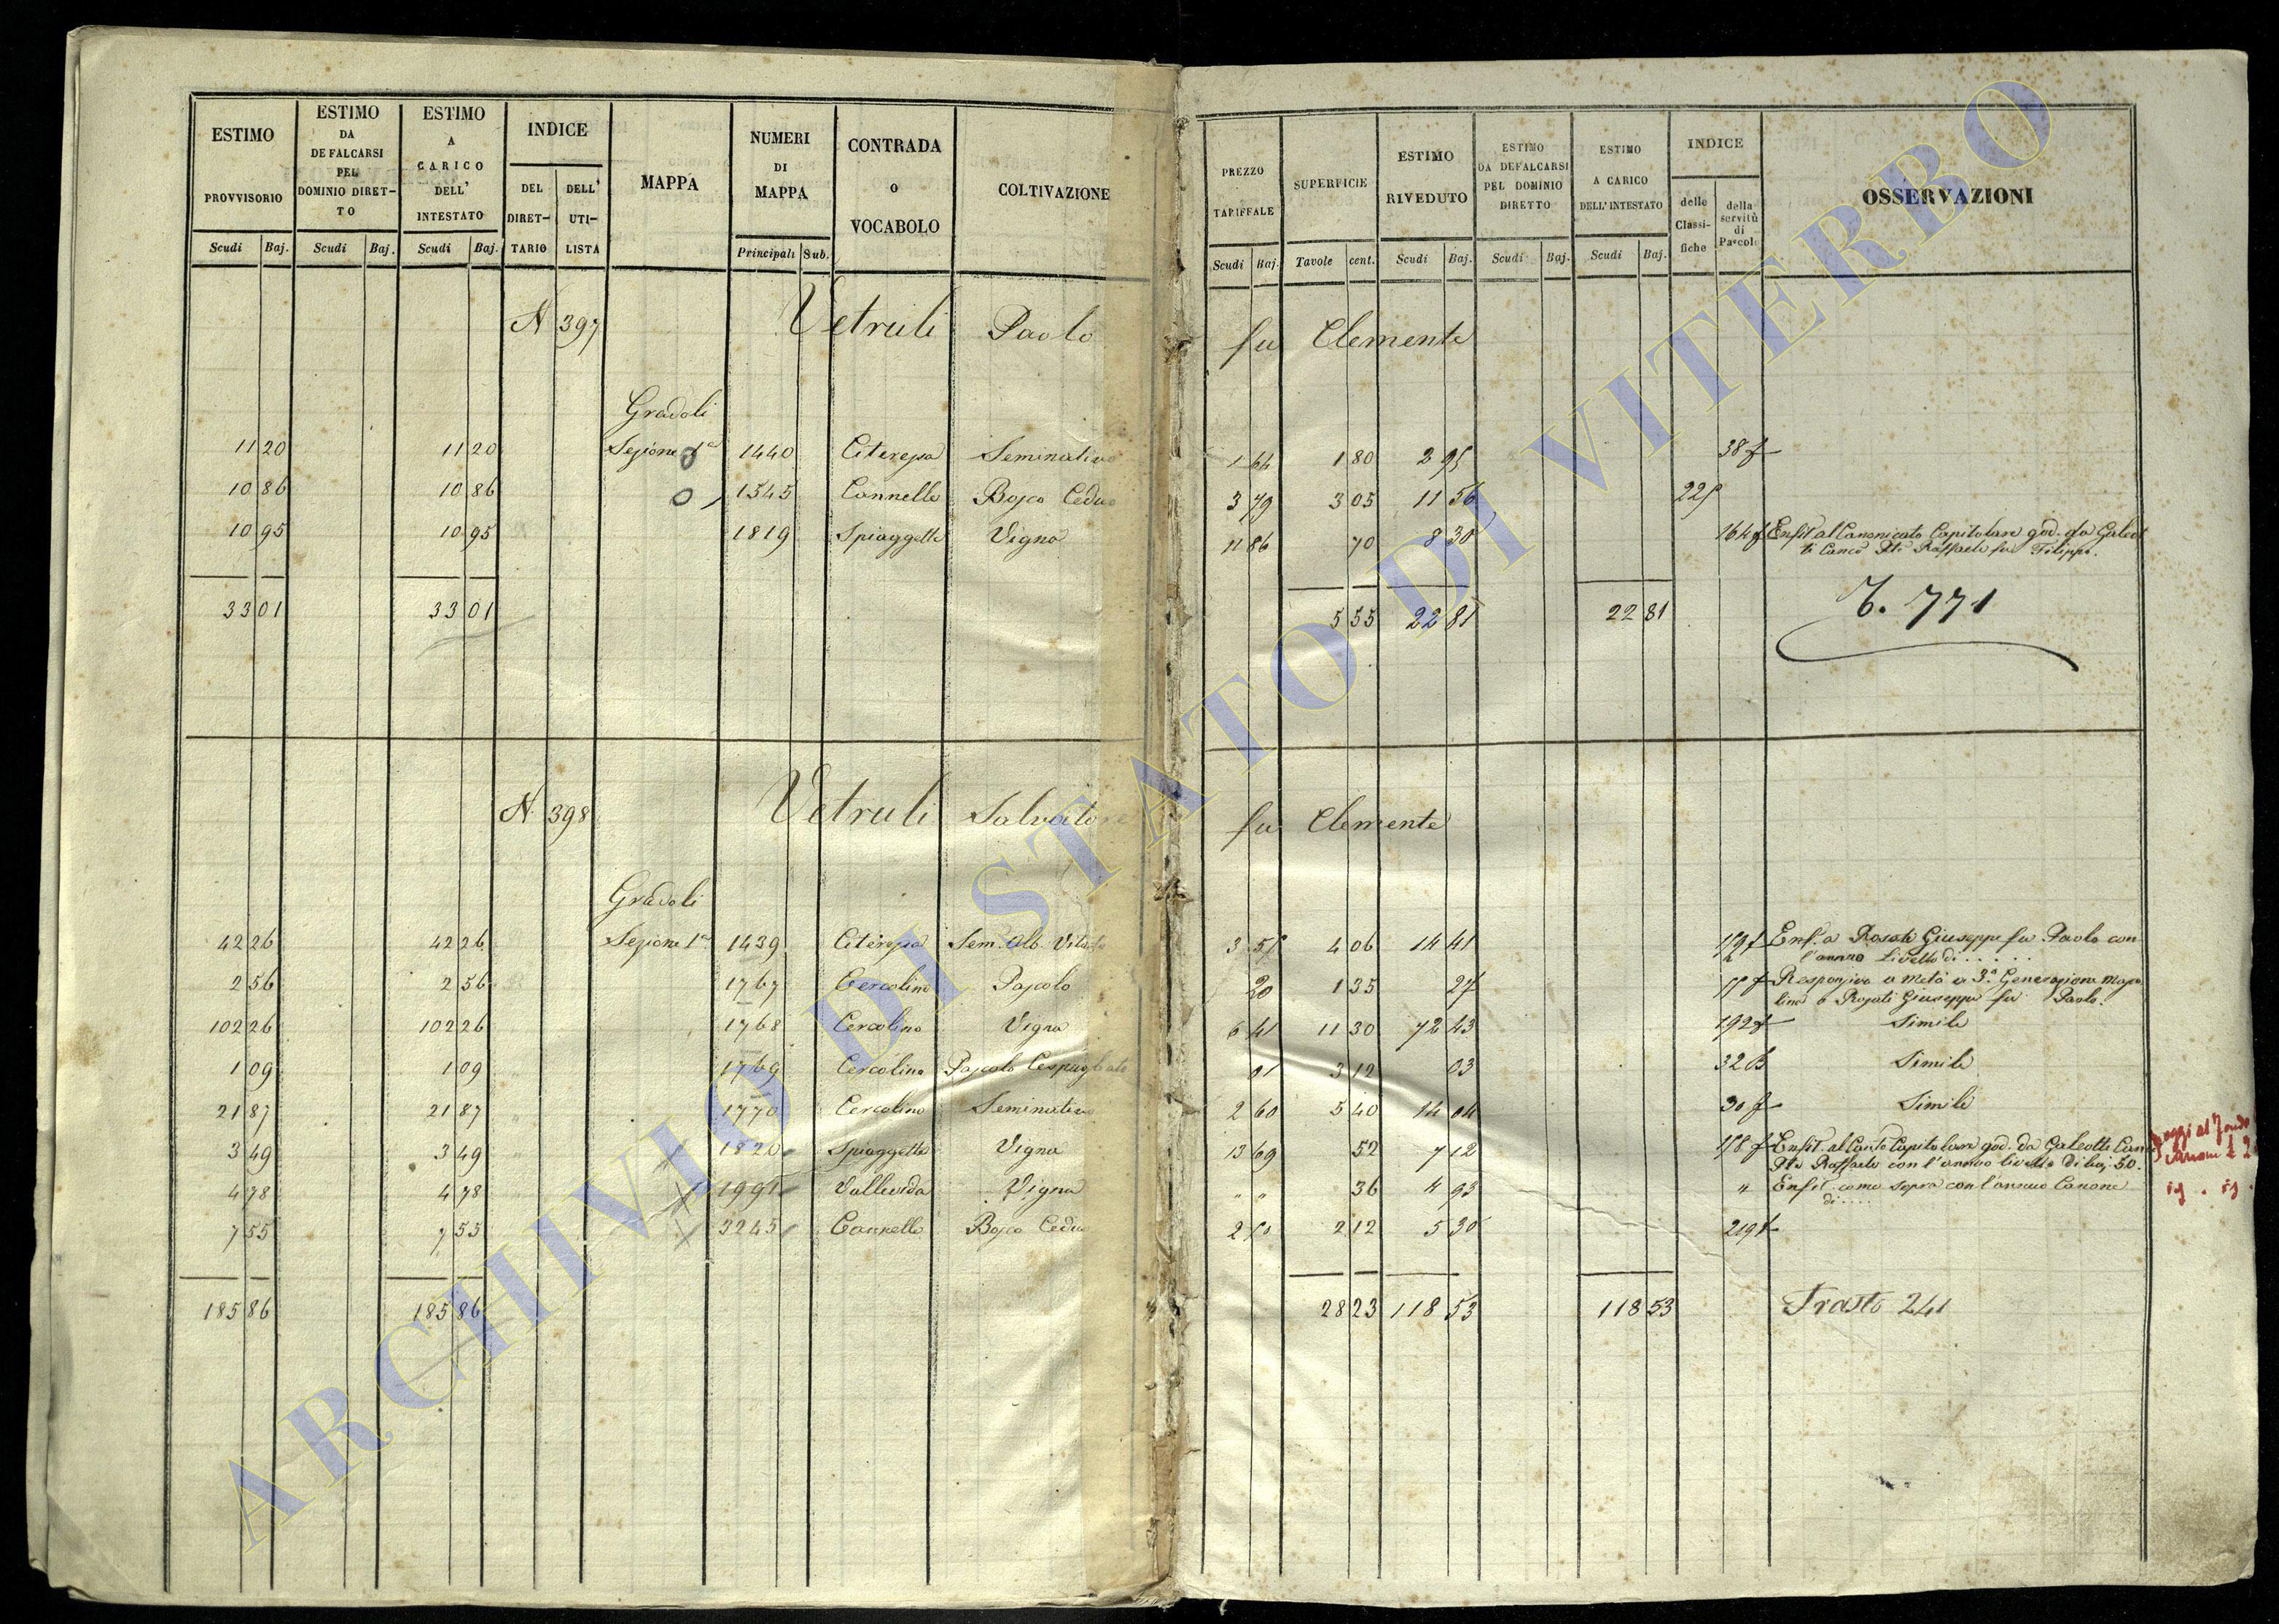 ESTIMO PROVVISORIO Scudi Baj.
ESTIMO DA DEFALCARSI PEL DOMINIO DIRETTO Scudi Baj.
ESTIMO A CARICO DELL' INTESTATO Scudi Baj.
INDICE DEL DIRETTARIO DELL' UTILISTA
MAPPA
NUMERI DI MAPPA Principali Sub.
CONTRADA O VOCABOLO
COLTIVAZIONE
PREZZO TARIFFALE Scudi Baj.
SUPERFICIE Tavole cent.
ESTIMO RIVEDUTO Scudi Baj.
ESTIMO DA DEFALCARSI PEL DOMINIO DIRETTO Scudi Baj.
ESTIMO A CARICO DELL' INTESTATO Scudi Baj.
INDICE delle Classifiche della servitù di Pascolo
OSSERVAZIONI
N 397 Vetruli Paolo fu Clemente
Gradoli
11 20 11 20 Sezione 1a 1440 Citerepa Seminativo 1 64 1 80 2 95 38 f
10 86 10 86 1545 Cannelle Bosco Ceduo 3 79 3 05 11 56 225
10 95 10 95 1819 Spiaggette Vigna 11 86 70 8 30 164 f Enfit. al Canonicato Capitolare god. da Galeot
ti Canco Dto Raffaele fu Filippo.
33 01 33 01 5 55 22 81 22 81 T. 771
N. 398 Vetruli Salvatore fu Clemente
Gradoli
42 26 42 26 Sezione 1a 1439 Citerepa Sem. Alb. Vitato 3 55 4 06 14 41 Enf. a Rosati Giuseppe fu Paolo con
l'annuo Livello di . . . . .
2 56 2 56 1767 Cercolino Pascolo 20 1 35 27 Responsivo a metà a 3a Generazione
a Rosati Giuseppe fu Paolo.
102 26 102 26 1768 Cercolino Vigna 6 41 11 30 72 43 192 f Simile
1 09 1 09 1769 Cercolino Pascolo Cespugliato 01 3 12 03 32 Simile
21 87 21 87 " 1770 Cercolino Seminativo 2 60 5 40 14 04 30 f Simile
3 49 3 49 1820 Spiaggette Vigna 13 69 52 7 12 158 f Enfit. al Canto Capitolare god. da Galeotti Can
Dto Raffaele con l'annuo livello di baj. 50.
4 78 4 78 1991 Vallecida Vigna " " 36 4 93 " Enfit. come sopra con l'annuo Canone
di . . . .
7 55 7 55 2245 Cannelle Bosco Ceduo 2 50 2 12 5 30 219 f
185 86 185 86 28 23 118 53 118 53 Trasto 241
oggi al Fondo
ARCHIVIO DI STATO DI VITERBO